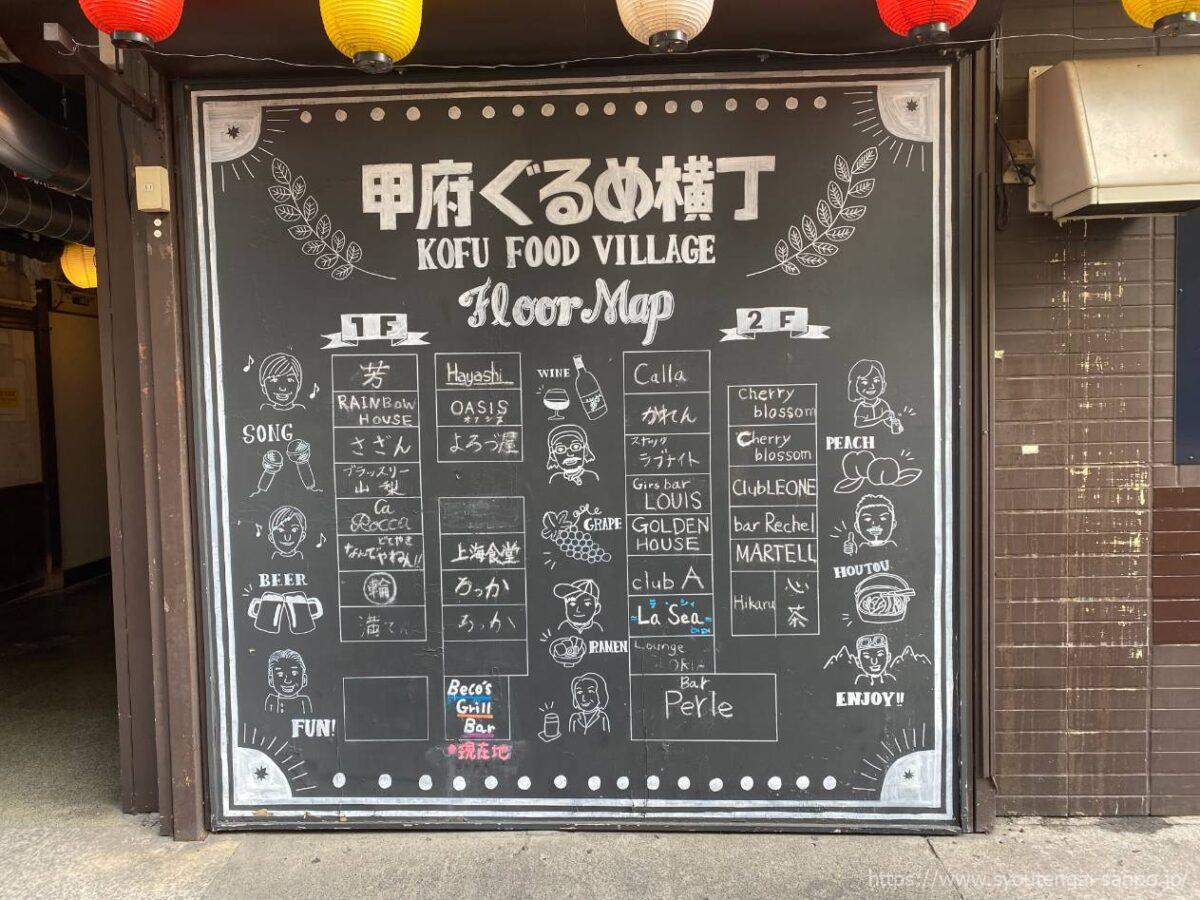 甲府ぐるめ横丁
KOFU FOOD VILLAGE
Floor Map
1F
芳
RAINBOW
HOUSE
さざん
ブラッスリー
山梨
Ca
Rocca
どてやき
なんでやねん!!
輪
満てん
Hayashi
OASIS
オアシス
よろづ屋
上海食堂
ろっか
ろっか
Beco's
Grill
Bar
●現在地
2F
Calla
かれん
スナック
ラブナイト
Girs bar
LOUIS
GOLDEN
HOUSE
club A
ラ・シィ
La Sea
Lounge
Bar
Perle
Cherry
blossom
Cherry
blossom
Club LEONE
bar Rechel
MARTELL
Hikaru
心
茶
SONG
BEER
FUN!
WINE
GRAPE
RAMEN
PEACH
HOUTOU
ENJOY!!
https://www.syoutengai-sanpo.jp/